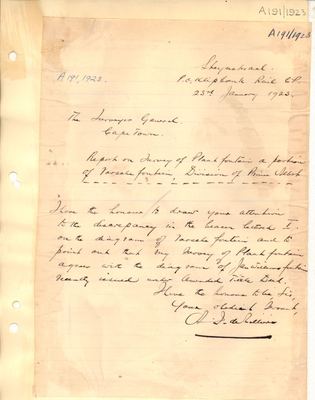 A191/1923
A191/1923
Steynskraal
P.O. Klipbank Rail C.P.
A191,1923.
23rd January 1923.
The Surveyor General
Cape Town.
Report on Survey of Plantfontein a portion
of Vosselsfontein, Division of Prince Albert
I have the honour to draw your attention
to the discrepancy in the beacon lettered
on the diagram of and to
point out that my survey of Plantfontein
agrees with the diagram of
recently issued under Amended Title Deed.
I have the honour to be, Sir,
Your obedient Servant,
de Villiers